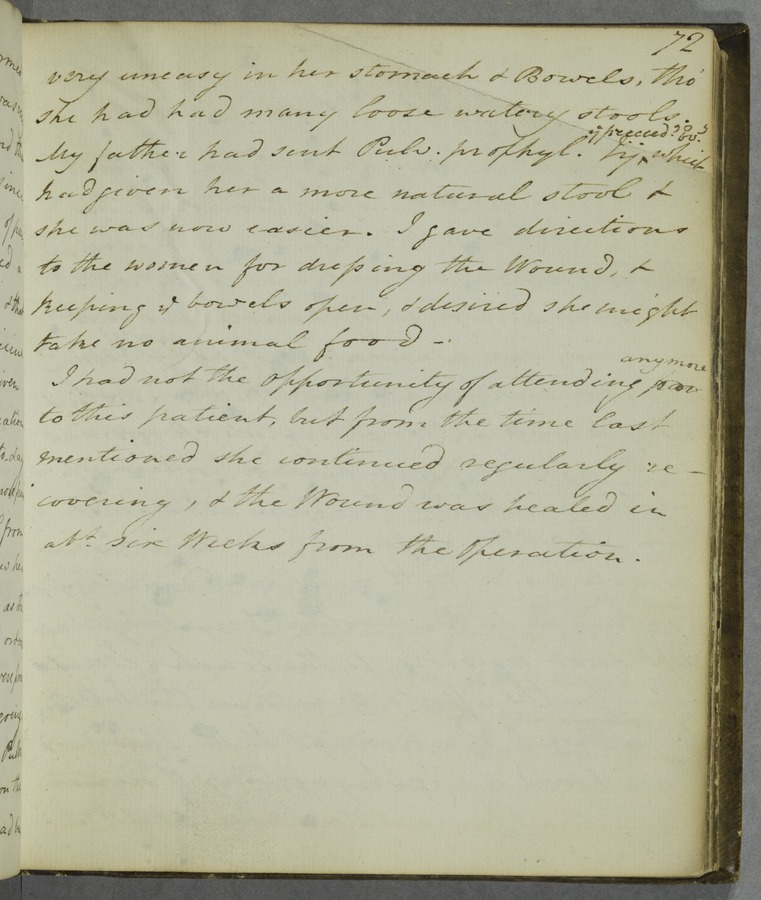 72
very uneasy in her stomach & Bowels, tho'
she had had many loose watery stools.
My father had sent Pulv. prophyl. ʒij, which
had given her a more natural stool &
she was now easier. I gave directions
to the women for dressing the Wound, &
keeping yͤ bowels open, & desired she might
take no animal food -
any more
I had not the opportunity of attending
to this patient, but from the time last
mentioned she continued regularly re-
covering, & the Wound was healed in
abt. six Weeks from the Operation.